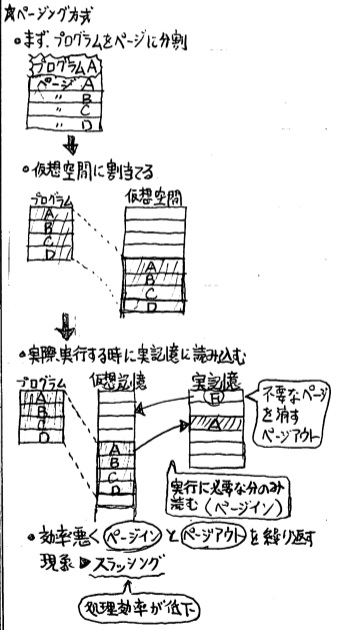 ☆ページング方式
・まず、プログラムをページに分割
プログラムA
ページ A
〃 B
〃 C
〃 D
・仮想空間に割当てる
プログラム
仮想空間
A
B
C
D
A
B
C
D
・実際、実行する時に実記憶に読み込む
プログラム
仮想記憶
実記憶
A
B
C
D
A
B
C
D
E
A
不要なページ
を消す
ページアウト
実行に必要な分のみ
読む(ページイン)
・効率悪く ページイン と ページアウト を繰り返す
現象▶スラッシング
処理効率が低下